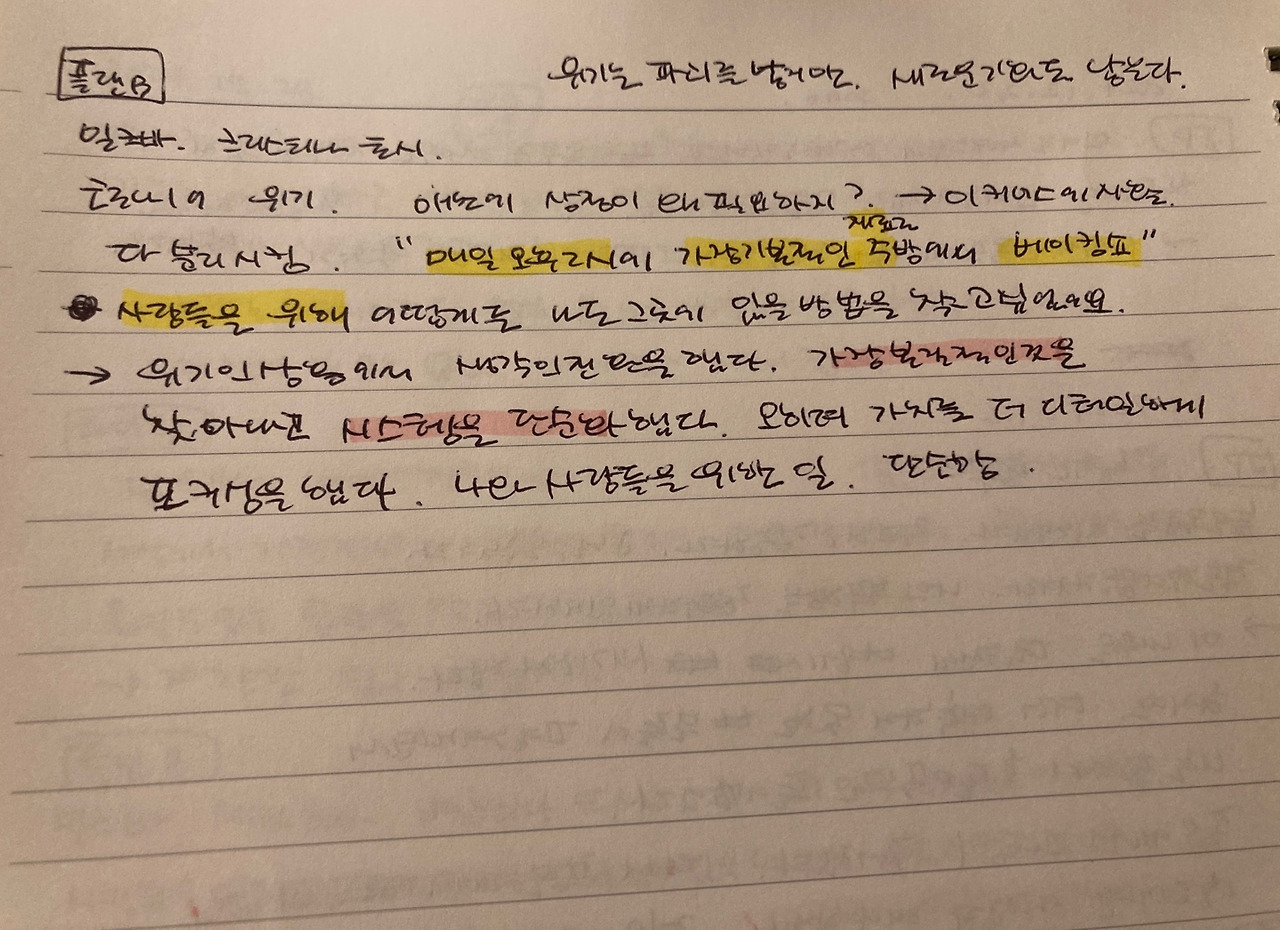 플랜B 위기는 파괴를 낳지만. 새로운 기회도 낳는다.
밀크바. 크리스티나 토시.
코로나의 위기. 애초에 상점이 왜 필요하지? → 이커머스에 사활을
재료로
다 분리시킴. "매일 오후 2시에 가장 기본적인 주방에서 베이킹쇼"
사람들을 위해 어떻게든 나도 그곳에 있을 방법을 찾고 있었어요.
→ 위기의 상황에서 생각의 전환을 했다. 가장 본질적인 것을
찾아내고 시스템을 단순화 했다. 오히려 가치를 더 디테일하게
포커싱을 했다. 나와 사람들을 위한 일. 단순함.